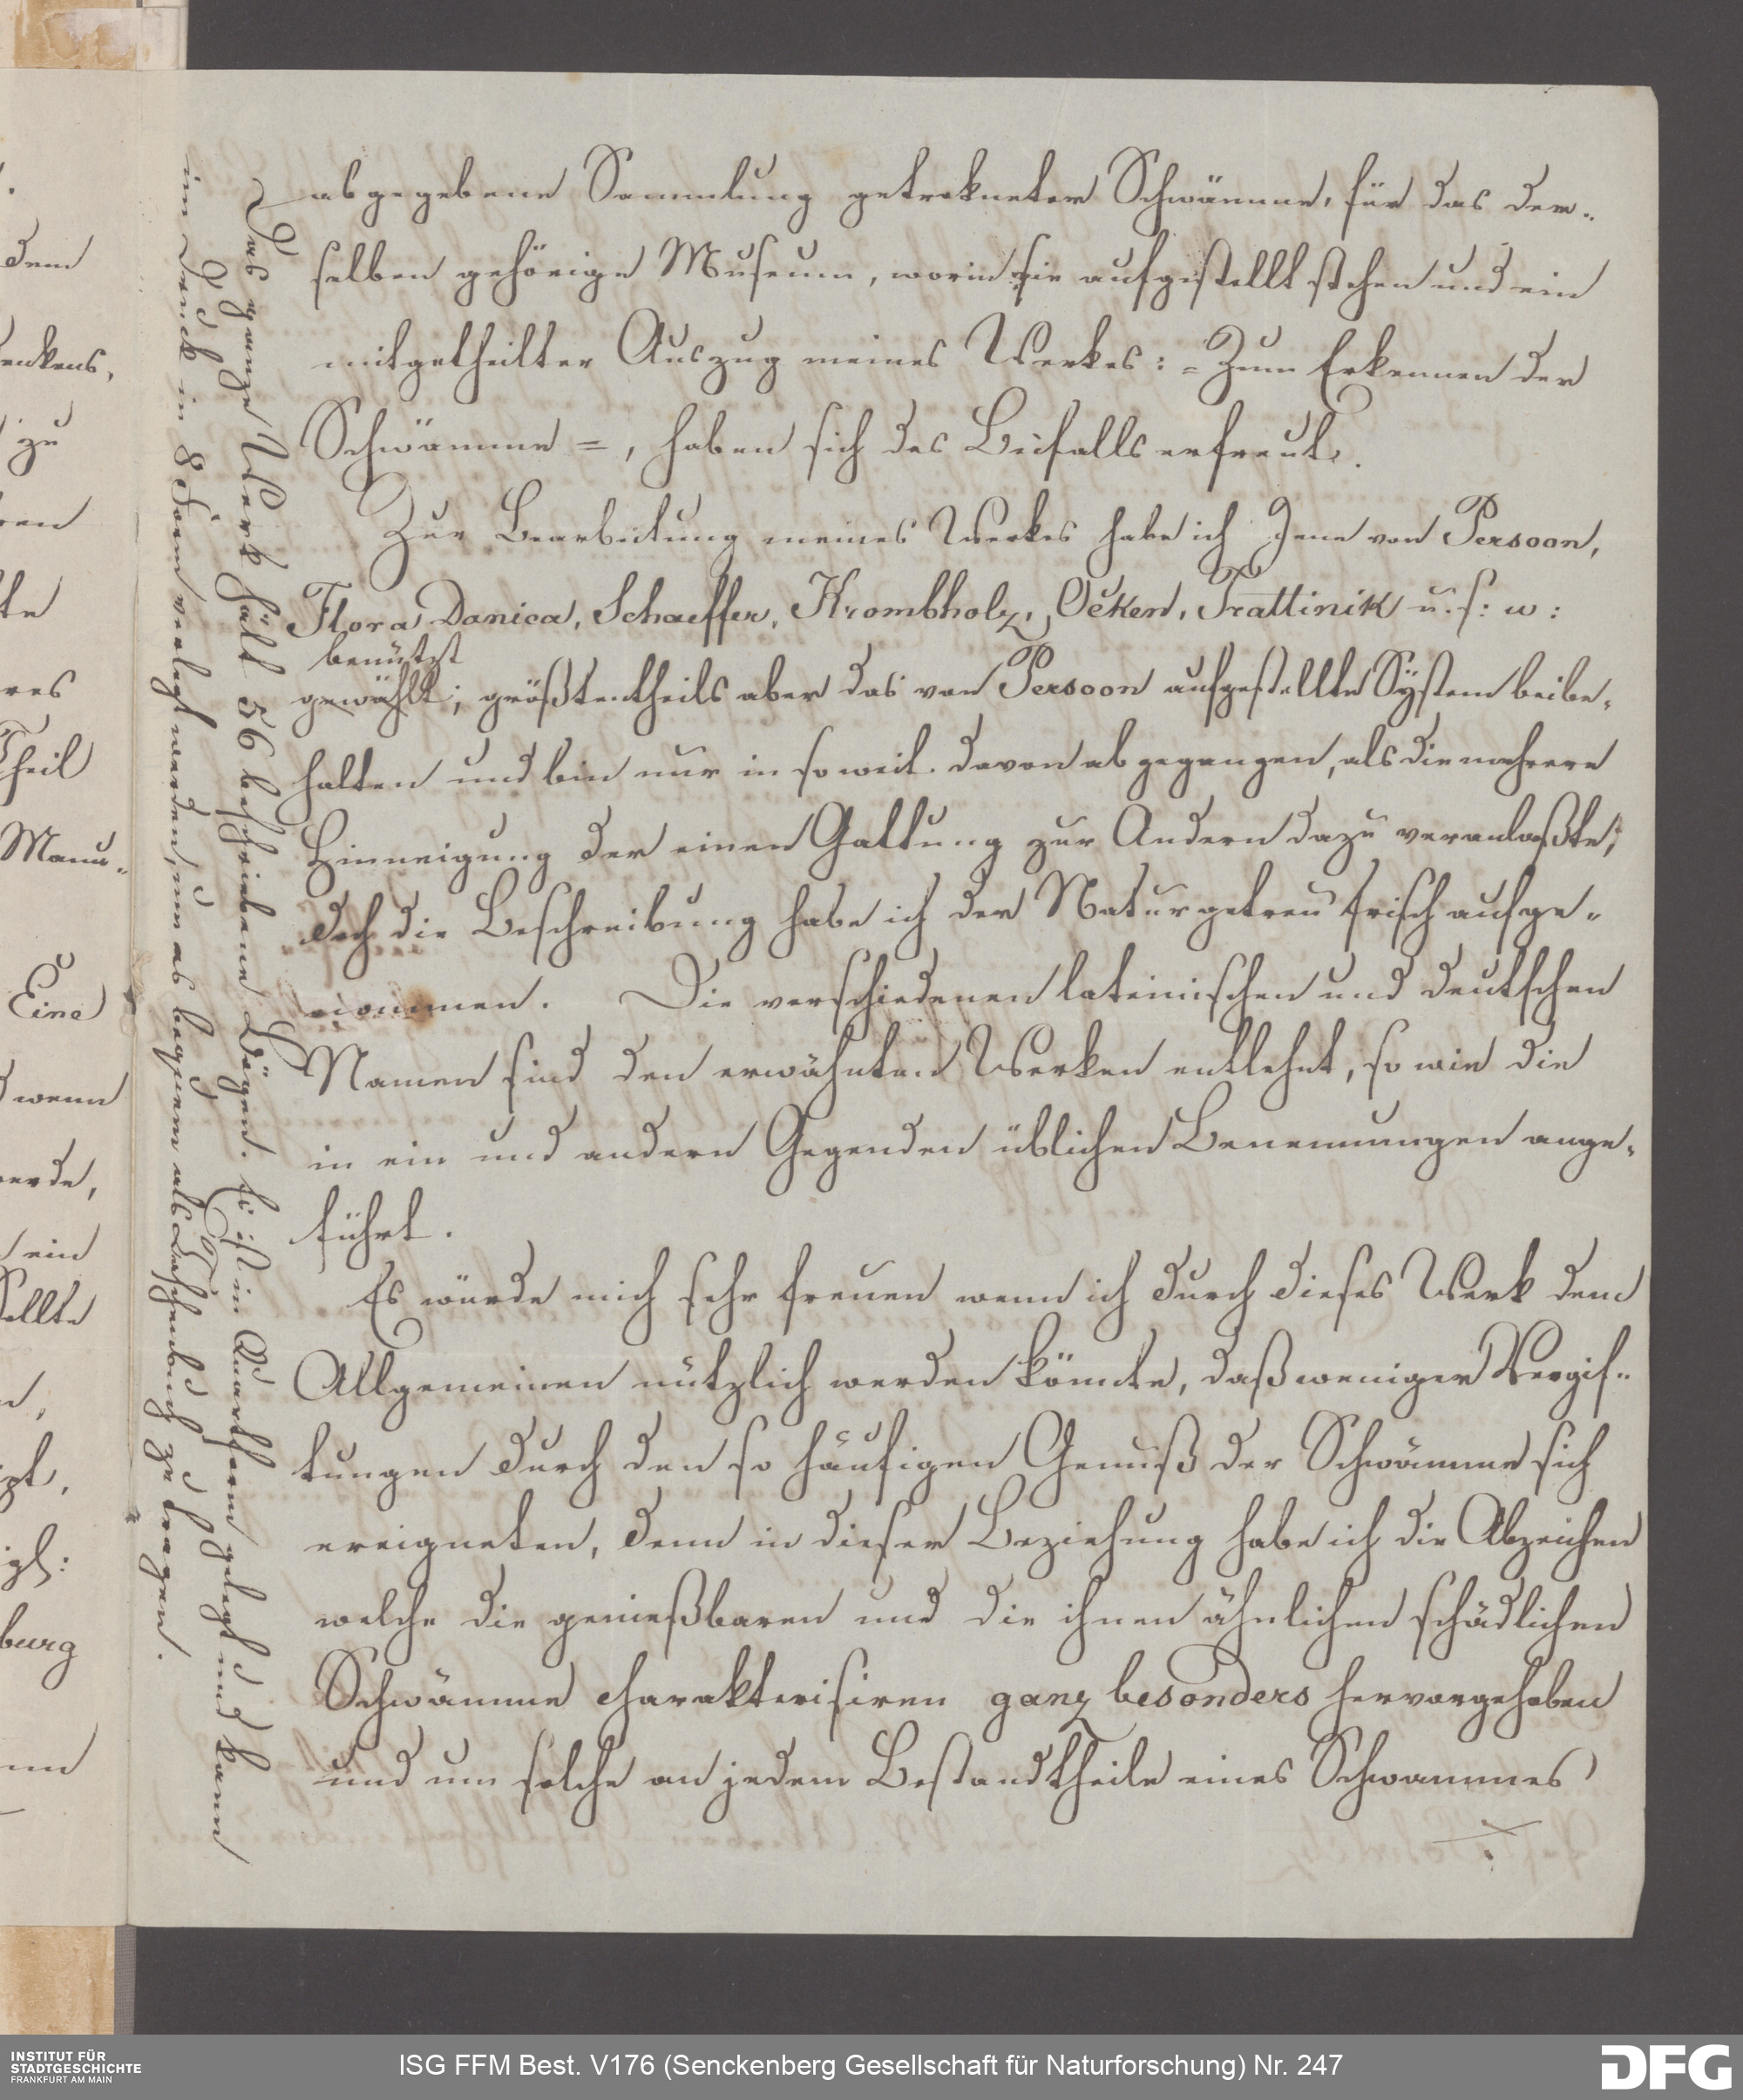 abgegebene Sammlung getrokneter Schwämme, für das der-
selben gehörige Museum, worin sie aufgestellt stehen und ein
mitgetheilter Auszug meines Werkes: = Zum Erkennen der
Schwämme =, haben sich des Beifalls erfreut.
Zur Bearbeitung meines Werkes habe ich Jene von Persoon,
Flora Danica, Schaeffer, Krombholz, Ocken, Trattinik u. s: w:
benützt
gewählt; größtentheils aber das von Persoon aufgestellte System beibe-
halten und bin nur in so weit davon abgegangen, als die mehrere
Hinneigung der einen Gattung zur Andern dazu veranlaßte;
doch die Beschreibung habe ich der Natur getreu frisch aufge-
nommen. Die verschiedenen lateinischen und deutschen
Namen sind den erwähnten Werken entlehnt, so wie die
in ein und andern Gegenden üblichen Benennungen ange-
führt.
Es würde mich sehr freuen wenn ich durch dieses Werk dem
Allgemeinen nützlich werden könnte, daß weniger Vergif-
tungen durch den so häufigen Genuß der Schwämme sich
ereigneten, denn in dieser Beziehung habe ich die Abzeichen
welche die genießbaren und die ihnen ähnlichen schädlichen
Schwämme charakterisiren ganz besonders hervorgehoben
und um solche an jedem Bestandtheile eines Schwammes
Das ganze Werk hält 56 beschriebene Bögen. Es ist in Quartform gelegt und kann
im Druck in 8 Form verlegt werden, um es bequem als Taschenbuch zu tragen.
dem
enkens,
zu
ren
te
res
Theil
Manu-
Eine
wenn
erde,
ein
sollte
burg
INSTITUT FÜR
STADTGESCHICHTE
FRANKFURT AM MAIN
ISG FFM Best. V176 (Senckenberg Gesellschaft für Naturforschung) Nr. 247
DFG